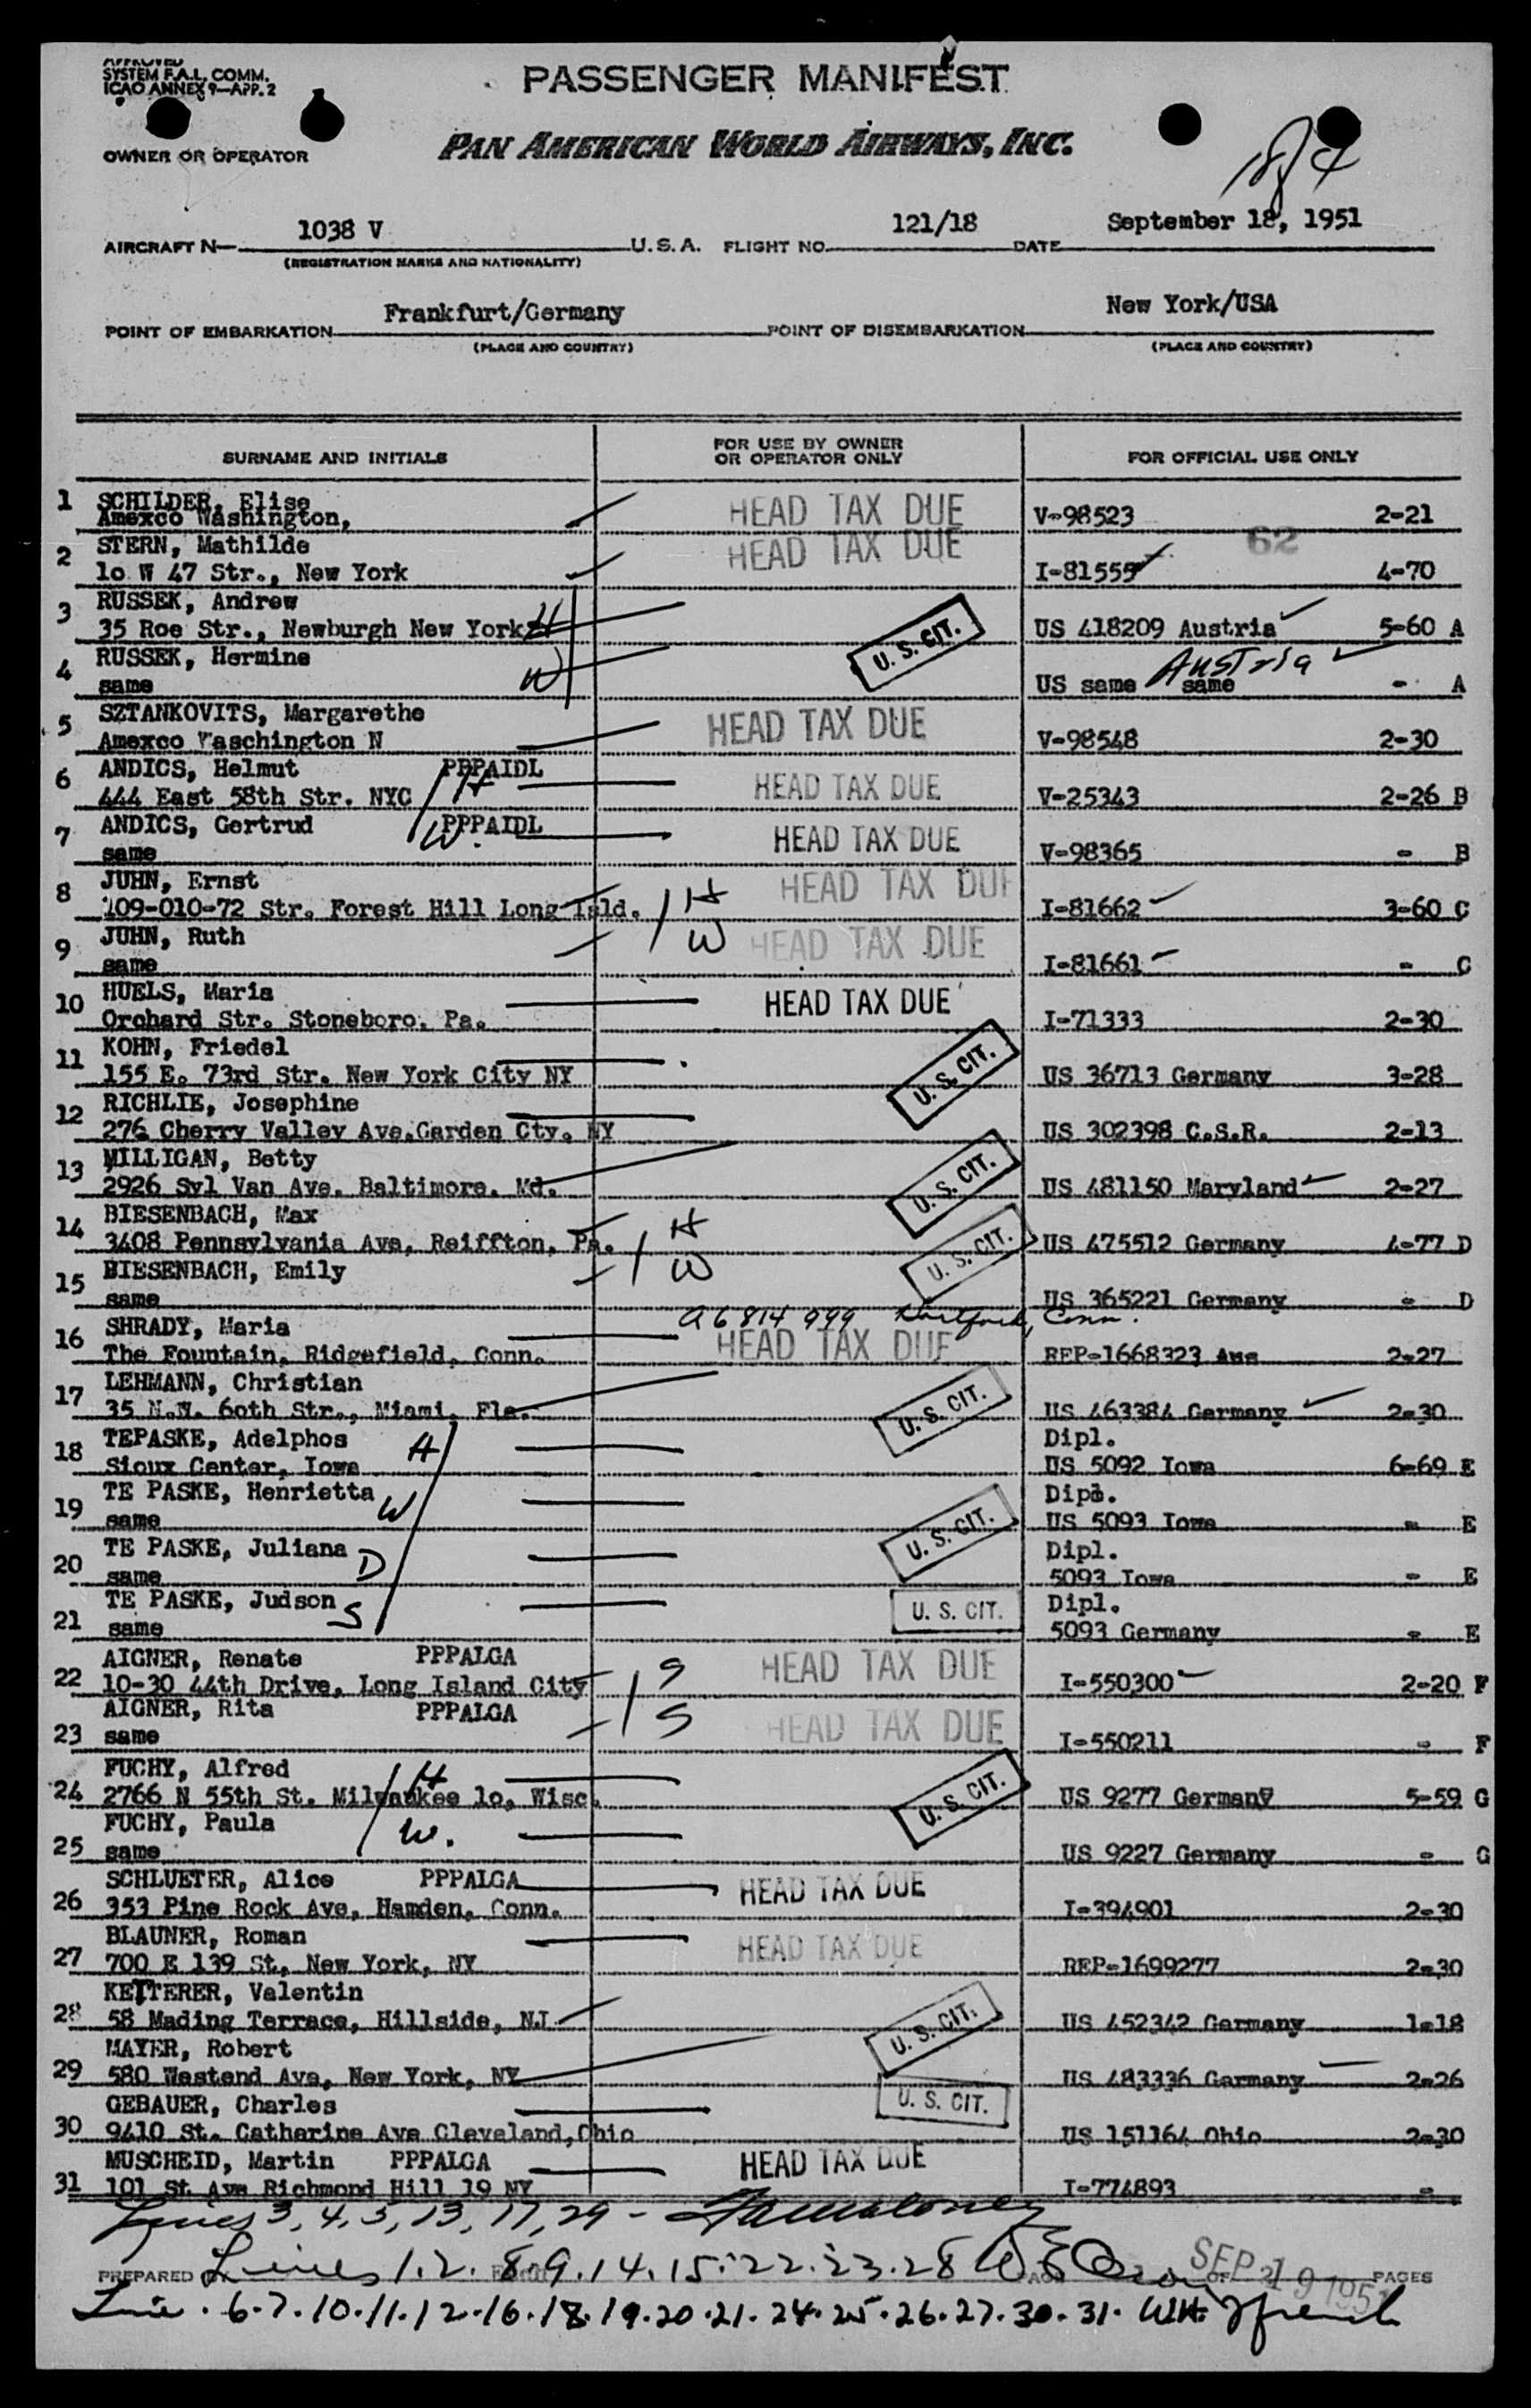 APPROVED
SYSTEM F.A.L. COMM.
ICAO ANNEX 9—APP. 2
PASSENGER MANIFEST
OWNER OR OPERATOR
PAN AMERICAN WORLD AIRWAYS, INC.
AIRCRAFT N— 1038 V U.S.A. FLIGHT NO. 121/18 DATE September 18, 1951
(REGISTRATION MARKS AND NATIONALITY)
POINT OF EMBARKATION Frankfurt/Germany POINT OF DISEMBARKATION New York/USA
(PLACE AND COUNTRY) (PLACE AND COUNTRY)
SURNAME AND INITIALS FOR USE BY OWNER OR OPERATOR ONLY FOR OFFICIAL USE ONLY
1 SCHILDER, Elise HEAD TAX DUE
Amexco Washington, V-98523 2-21
2 STERN, Mathilde HEAD TAX DUE 62
1o W 47 Str., New York I-81555 4-70
3 RUSSEK, Andrew
35 Roe Str., Newburgh New York H U. S. CIT. US 418209 Austria 5-60 A
4 RUSSEK, Hermine Austria
same W US same same - A
5 SZTANKOVITS, Margarethe HEAD TAX DUE
Amexco Waschington N V-98548 2-30
6 ANDICS, Helmut PPPAIDL H HEAD TAX DUE
444 East 58th Str. NYC V-25343 2-26 B
7 ANDICS, Gertrud PPPAIDL W. HEAD TAX DUE
same V-98365 - B
8 JUHN, Ernst H HEAD TAX DUE
109-010-72 Str. Forest Hill Long Isld. I-81662 3-60 C
9 JUHN, Ruth W HEAD TAX DUE
same I-81661 - C
10 HUELS, Maria HEAD TAX DUE
Orchard Str. Stoneboro, Pa. I-71333 2-30
11 KOHN, Friedel U. S. CIT.
155 E. 73rd Str. New York City NY US 36713 Germany 3-28
12 RICHLIE, Josephine
276 Cherry Valley Ave.Garden Cty. NY US 302398 C.S.R. 2-13
13 MILLIGAN, Betty U. S. CIT.
2926 Syl Van Ave. Baltimore. Md. US 481150 Maryland 2-27
14 BIESENBACH, Max H
3408 Pennsylvania Ave, Reiffton, Pa. U. S. CIT. US 475512 Germany 4-77 D
15 BIESENBACH, Emily W
same US 365221 Germany - D
A6814999 Hartford, Conn.
16 SHRADY, Maria HEAD TAX DUE
The Fountain, Ridgefield, Conn. REP-1668323 Aus 2-27
17 LEHMANN, Christian U. S. CIT.
35 N.W. 6oth Str., Miami, Fla. US 463384 Germany 2-30
18 TEPASKE, Adelphos H Dipl.
Sioux Center, Iowa US 5092 Iowa 6-69 E
19 TE PASKE, Henrietta W Dipl.
same US 5093 Iowa - E
20 TE PASKE, Juliana D U. S. CIT. Dipl.
same 5093 Iowa - E
21 TE PASKE, Judson S U. S. CIT. Dipl.
same 5093 Germany - E
22 AIGNER, Renate PPPALGA S HEAD TAX DUE
10-30 44th Drive, Long Island City I-550300 2-20 F
23 AIGNER, Rita PPPALGA S HEAD TAX DUE
same I-550211 - F
24 FUCHY, Alfred H U. S. CIT.
2766 N 55th St. Milwaukee 1o, Wisc. US 9277 Germany 5-59 G
25 FUCHY, Paula W.
same US 9227 Germany - G
26 SCHLUETER, Alice PPPALGA HEAD TAX DUE
353 Pine Rock Ave, Hamden, Conn. I-394901 2-30
27 BLAUNER, Roman HEAD TAX DUE
700 E 139 St, New York, NY REP-1699277 2-30
28 KETTERER, Valentin U. S. CIT.
58 Mading Terrace, Hillside, NJ US 452342 Germany 1-18
29 MAYER, Robert
580 Westend Ave, New York, NY US 483336 Germany 2-26
30 GEBAUER, Charles U. S. CIT.
9410 St. Catharine Ave Cleveland,Ohio US 151164 Ohio 2-30
31 MUSCHEID, Martin PPPALGA HEAD TAX DUE
101 St Ave Richmond Hill 19 NY I-774893 -
Lines 3, 4, 5, 13, 17, 29 -
PREPARED Lines 1. 2. 8. 9. 14. 15. 22. 23. 28 SEP 19 1951 PAGES
Line. 6. 7. 10. 11. 12. 16. 18. 19. 20. 21. 24. 25. 26. 27. 30. 31.